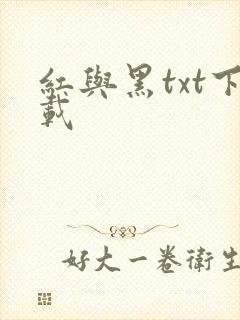 紅與黑txt下
載
好大一卷衛生